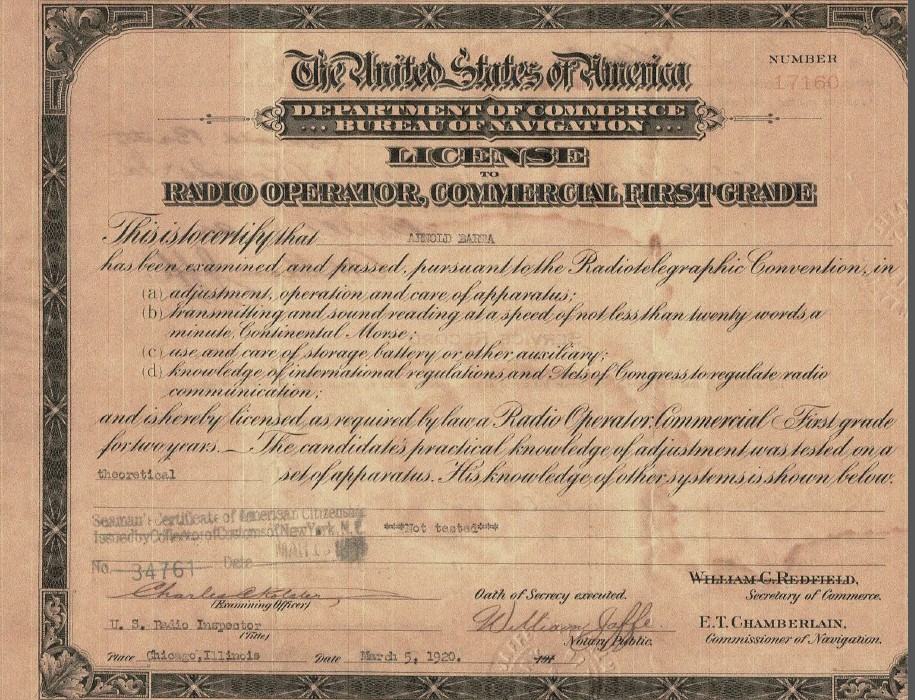 The United States of America
NUMBER
17160
DEPARTMENT OF COMMERCE
BUREAU OF NAVIGATION
LICENSE
TO
RADIO OPERATOR, COMMERCIAL FIRST GRADE
This is to certify that ARNOLD BARTA
has been examined and passed, pursuant to the Radiotelegraphic Convention, in
(a) adjustment, operation and care of apparatus;
(b) transmitting and sound reading at a speed of not less than twenty words a
minute, Continental Morse;
(c) use and care of storage battery or other auxiliary;
(d) knowledge of international regulations and Acts of Congress to regulate radio
communication;
and is hereby licensed as required by law a Radio Operator, Commercial First grade
for two years. The candidate's practical knowledge of adjustment was tested on a
theoretical set of apparatus. His knowledge of other systems is shown below.
Seaman's Certificate of American Citizenship
Issued by Collector of Customs of New York, N.Y.
***Not tested***
MAR 15
No. 34761 Date
Charles C. Kolster
(Examining Officer)
Oath of Secrecy executed.
WILLIAM C. REDFIELD,
Secretary of Commerce.
U. S. Radio Inspector
(Title)
William Jaffe.
Notary Public.
E. T. CHAMBERLAIN,
Commissioner of Navigation.
Place Chicago, Illinois Date March 5, 1920. 191